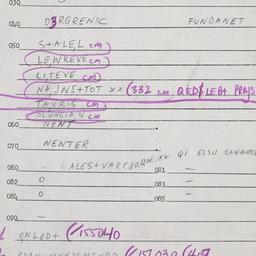 030
040 D3RGRENIC FUNDANET
050 S+ALE,L cm
LEWKEVE cm
LITEVE cm
NA,JNS+TOT xx (332 cm, QED$LEB+ PRAJS
TA,VRIG cm
DLUNGIA,N cm
060 NENT
070 NENTER
ALES+VARCJORN: xx QI ELSU S+VARE
080 081 —
082 0 083 —
084 0 085
090 —
ONLOD+ (/155040